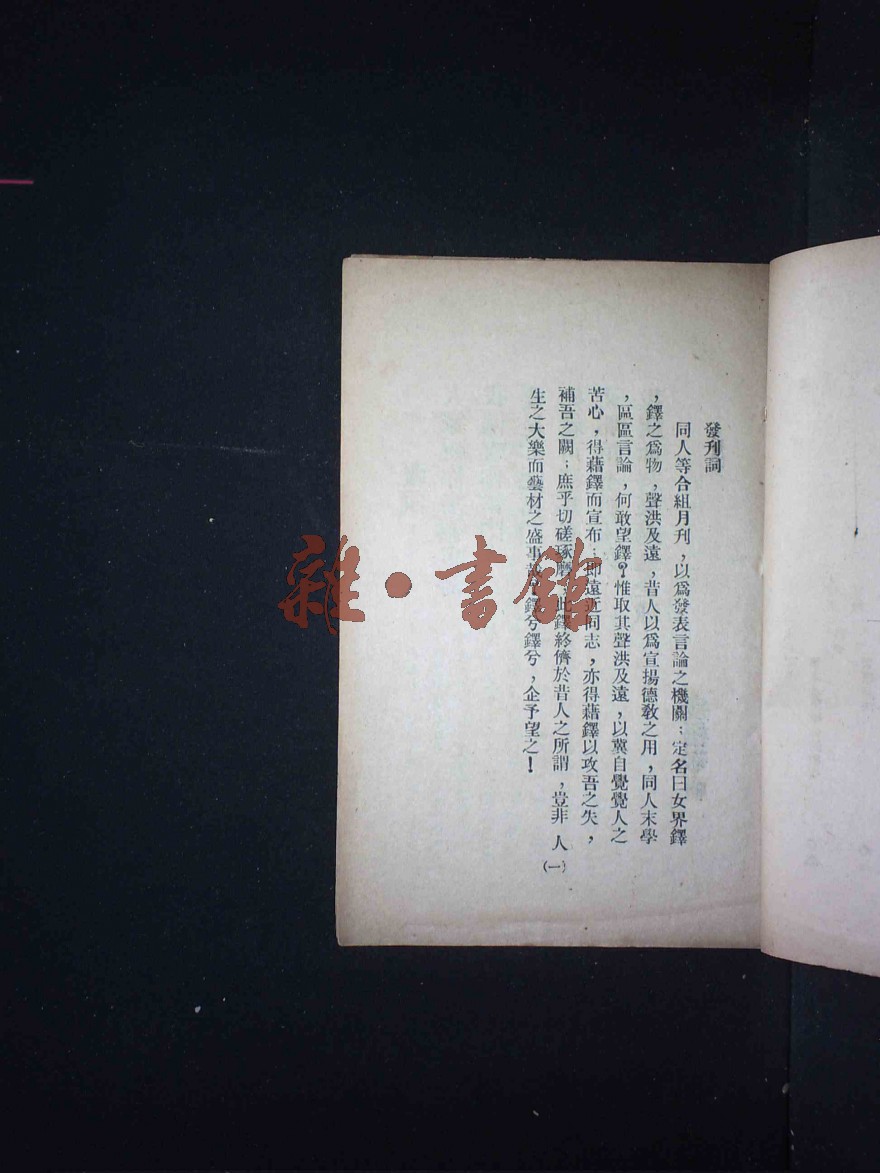 發刊詞
同人等合組月刊，以爲發表言論之機關；定名曰女界鐸
，鐸之爲物，聲洪及遠，昔人以爲宣揚德敎之用，同人末學
，區區言論，何敢望鐸？惟取其聲洪及遠，以冀自覺覺人之
苦心，得藉鐸而宣布；卽遠近同志，亦得藉鐸以攻吾之失，
補吾之闕；庶乎切磋琢磨，此鐸終儕於昔人之所謂，豈非人
生之大樂而藝材之盛事哉！鐸兮鐸兮，企予望之！
（一）
雜·書館